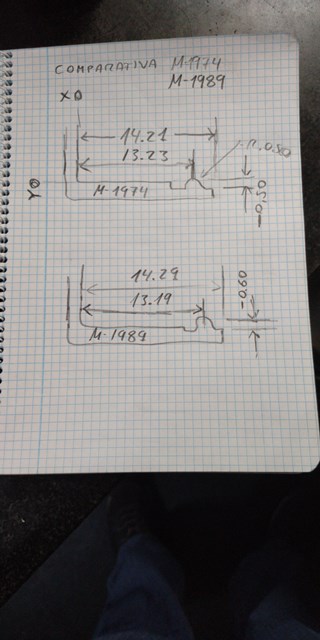 COMPARATIVA M-1974
M-1989
X0
14.21
13.23
R.050
M-1974
Y0
-0.50
14.29
13.19
-0.60
M-1989